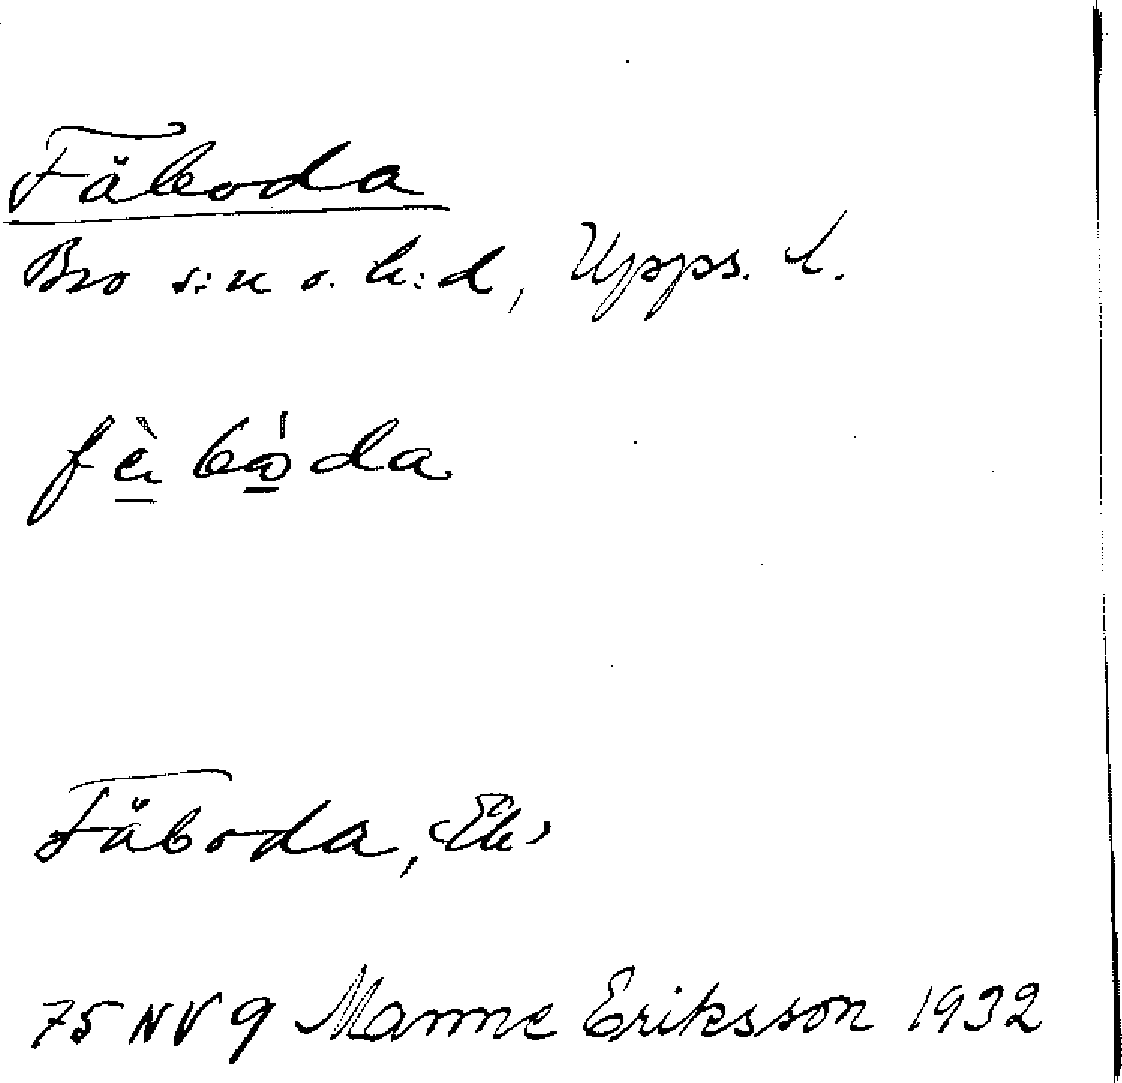 Fäboda
Bro s:n o. h:d, Upps. l.
fèbóda
Fäboda, Ek
75 NV 9 Manne Eriksson 1932